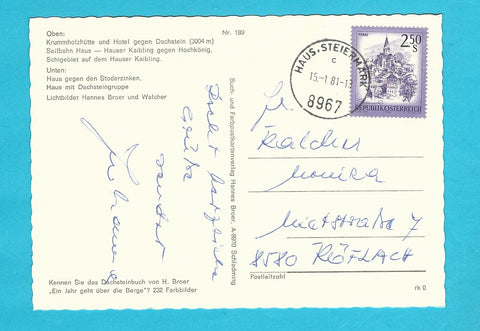 Oben:
Krummholzhütte und Hotel gegen Dachstein (3004 m)
Seilbahn Haus — Hauser Kaibling gegen Hochkönig,
Schigebiet auf dem Hauser Kaibling.
Unten:
Haus gegen den Stoderzinken,
Haus mit Dachsteingruppe
Lichtbilder Hannes Broer und Walcher
Nr. 189
Recht herzliche
Grüße
sendet
Kennen Sie das Dachsteinbuch von H. Broer
„Ein Jahr geht über die Berge"? 232 Farbbilder
Buch- und Farbpostkartenverlag Hannes Broer, A-8970 Schladming
HAUS, STEIERMARK
c
15.-1.81-1
8967
2.50 S
REPUBLIK ÖSTERREICH
Fr.
Monika
8580 KÖFLACH
Postleitzahl
rk O